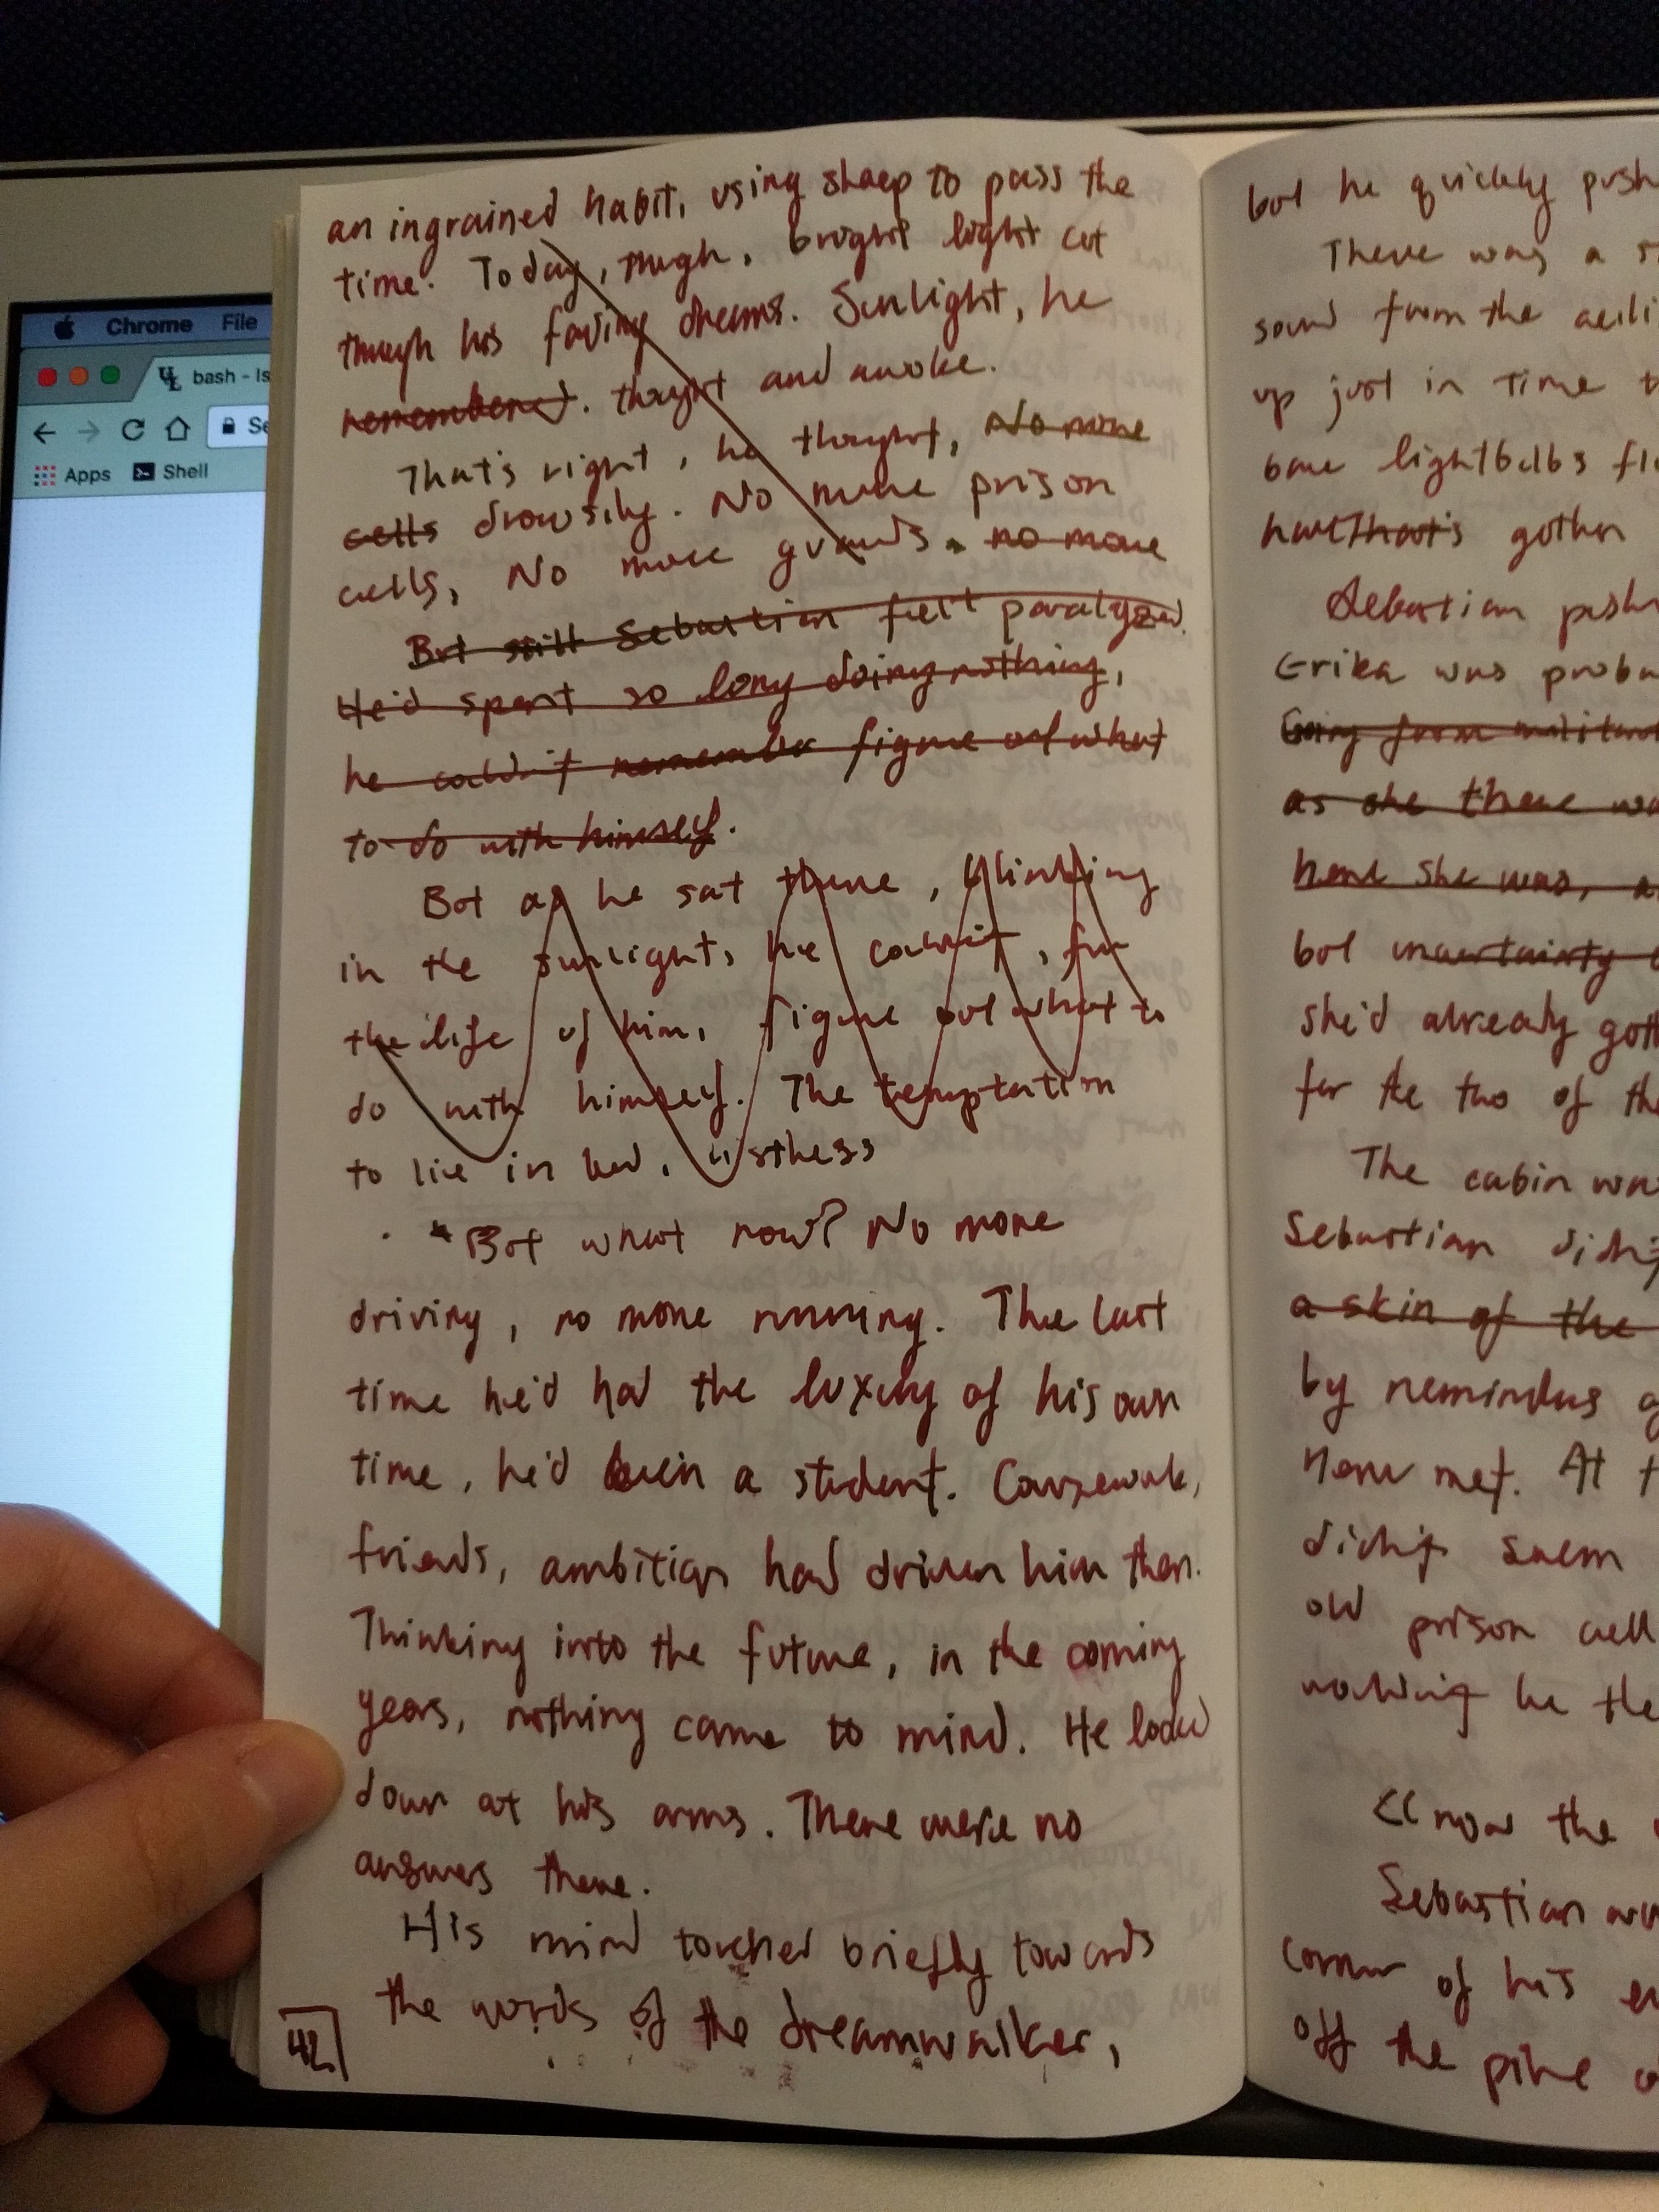 Chrome File
bash - ls
Apps Shell
an ingrained habit, using sleep to pass the
time. Today, though, bright light cut
through his fading dreams. Sunlight, he
remembered. thought and awoke.
That's right, he thought, No more
cells drowsily. No more prison
cells, No more guards. no more
But still Sebastian felt paralyzed.
He'd spent so long doing nothing,
he couldn't remember figure out what
to do with himself.
But as he sat there, blinking
in the sunlight, he couldn't, for
the life of him, figure out what to
do with himself. The temptation
to lie in bed, listless
*But what now? No more
driving, no more running. The last
time he'd had the luxury of his own
time, he'd been a student. Coursework,
friends, ambition had driven him then.
Thinking into the future, in the coming
years, nothing came to mind. He looked
down at his arms. There were no
answers there.
His mind touched briefly towards
the words of the dreamwalker,
42
but he quickly push
There was a
sound from the ceili
up just in time
bare lightbulbs
have That's gotten
Sebastian
Erika was proba
Going from
as she there
how she was,
but uncertainty
she'd already gott
for the two of
The cabin
Sebastian didn't
a skin of the
by reminders
never met. At
didn't seem
old prison cell
walking he
the
Sebastian
corner of his
off the pine